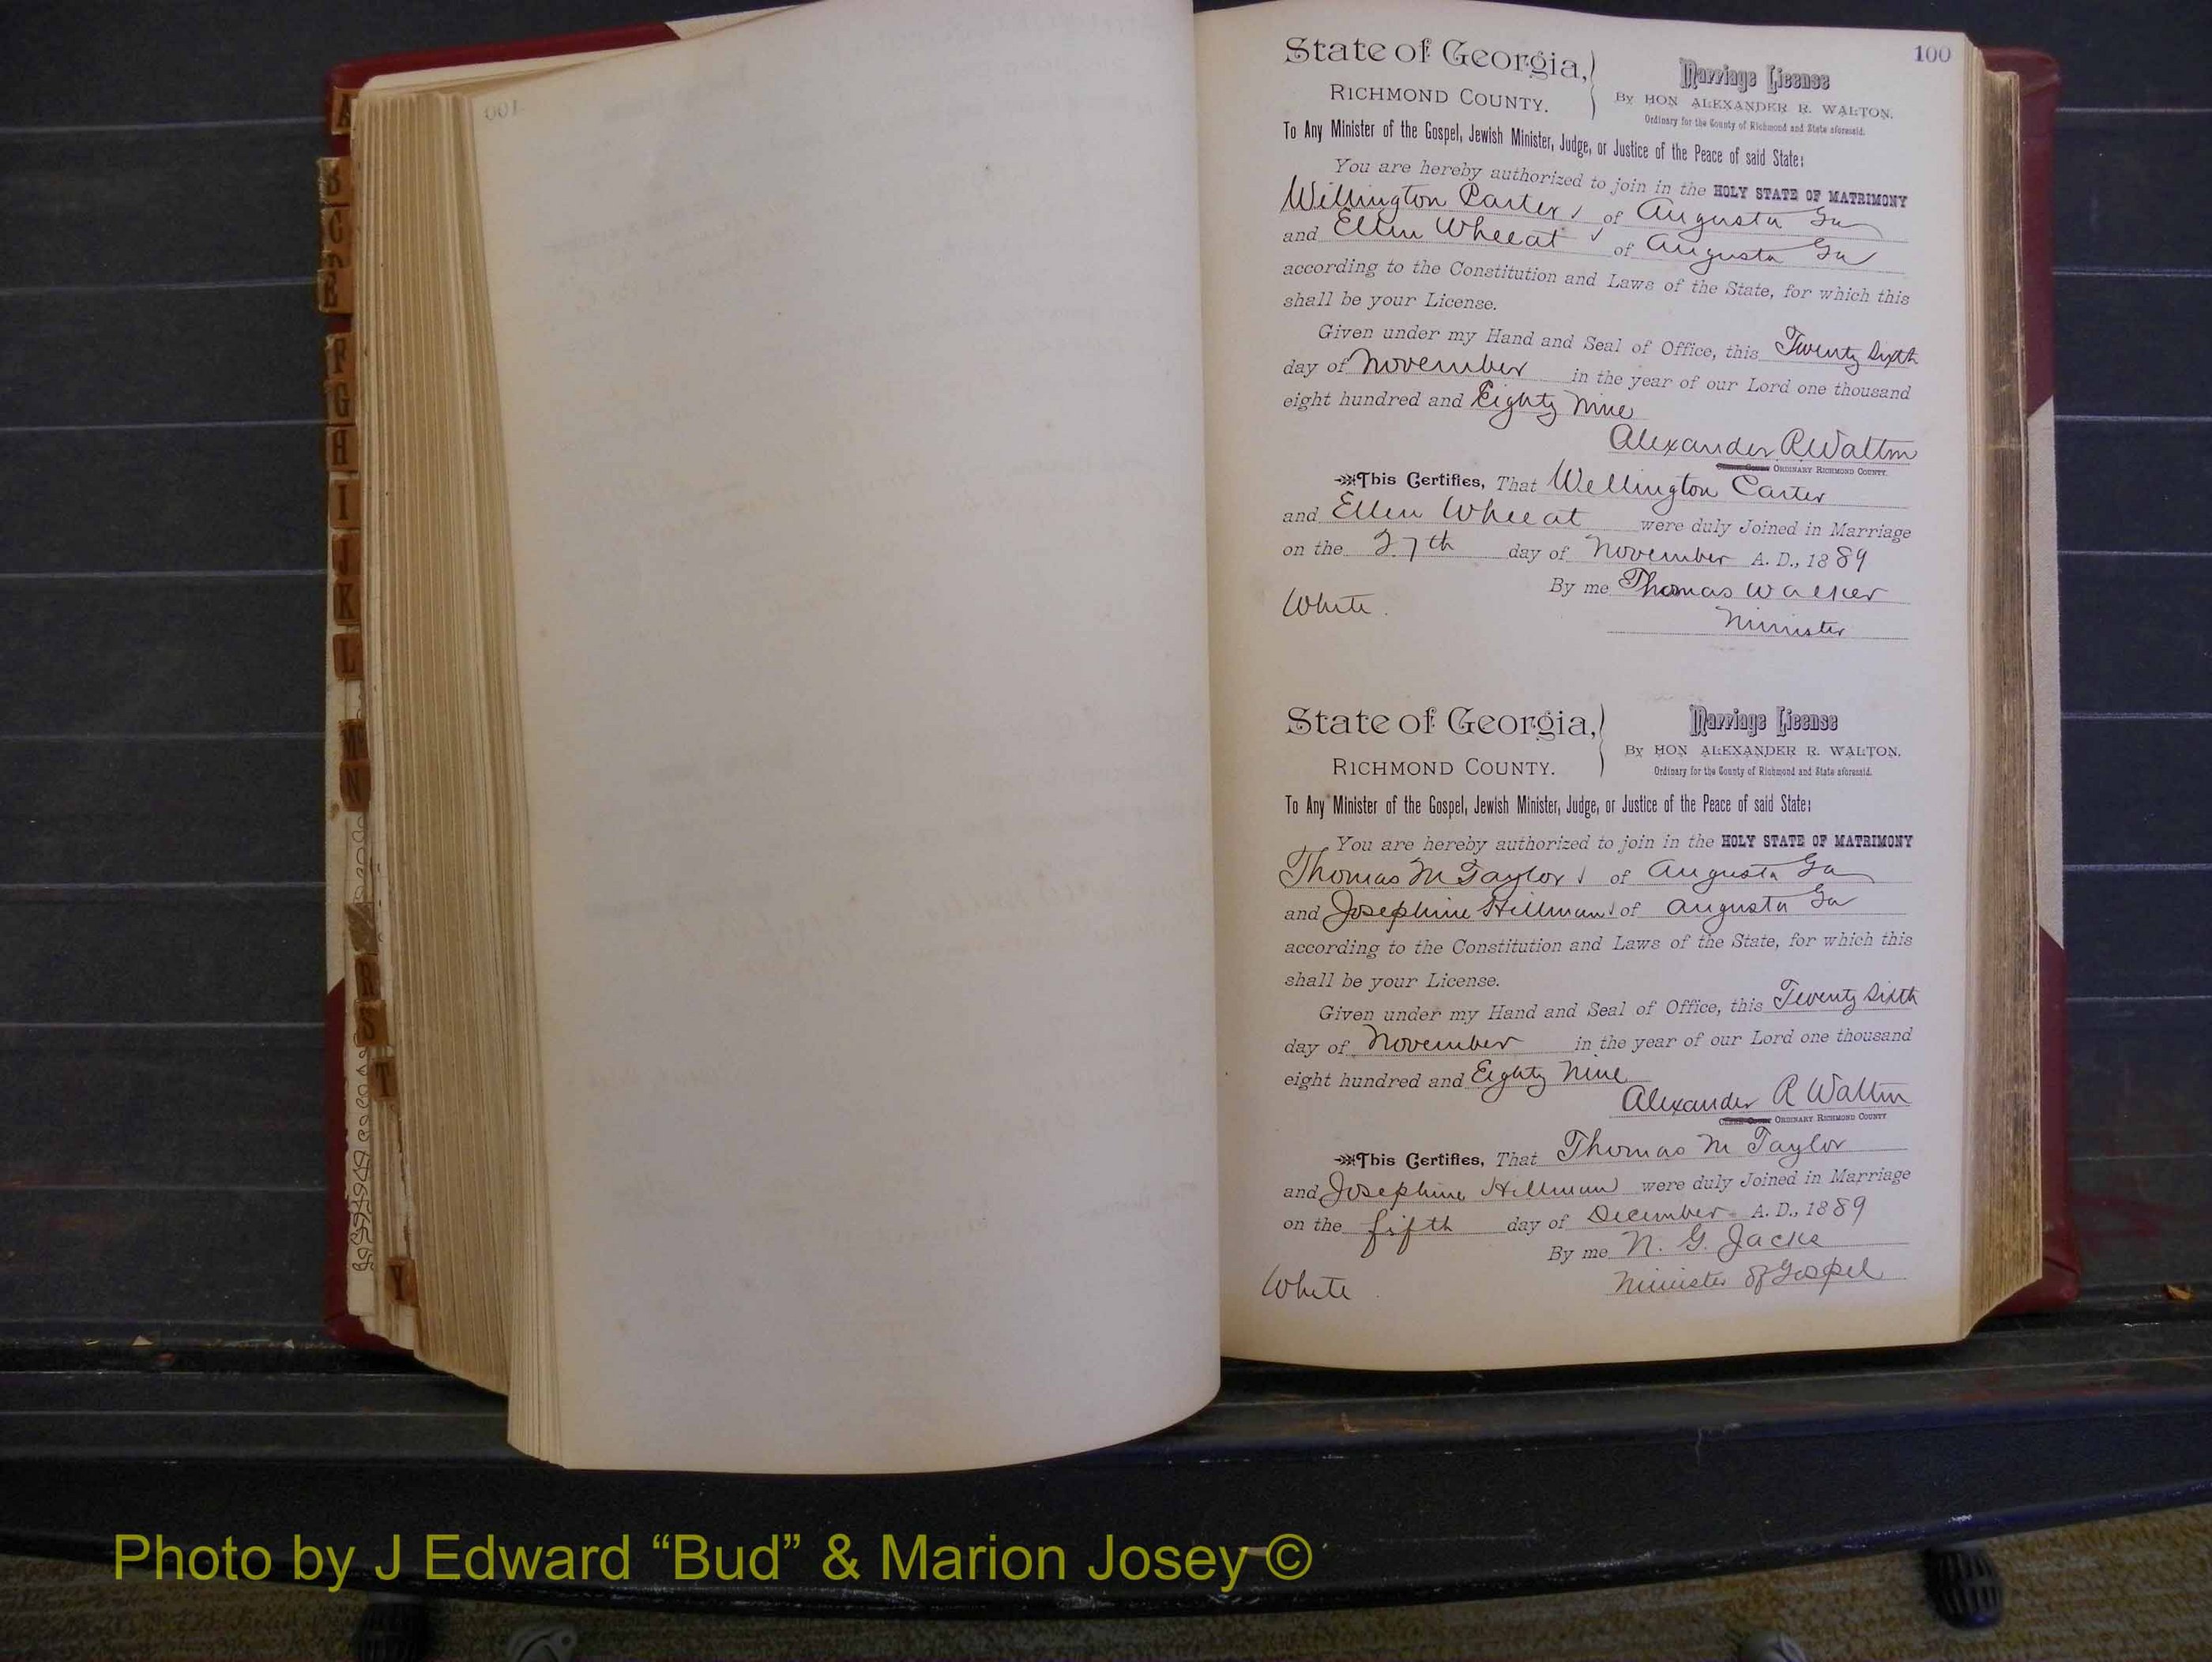 100
State of Georgia,
RICHMOND COUNTY.
Marriage License
By HON ALEXANDER R. WALTON.
Ordinary for the County of Richmond and State aforesaid.
To Any Minister of the Gospel, Jewish Minister, Judge, or Justice of the Peace of said State:
You are hereby authorized to join in the HOLY STATE OF MATRIMONY
Wellington Carter of Augusta Ga
and Ellen Wheeat of Augusta Ga
according to the Constitution and Laws of the State, for which this
shall be your License.
Given under my Hand and Seal of Office, this Twenty Sixth
day of November in the year of our Lord one thousand
eight hundred and Eighty Nine
Alexander R Walton
ORDINARY RICHMOND COUNTY.
This Certifies, That Wellington Carter
and Ellen Wheeat were duly Joined in Marriage
on the 27th day of November A. D., 1889
By me Thomas Walker
White.
Minister
State of Georgia,
RICHMOND COUNTY.
Marriage License
By HON ALEXANDER R. WALTON.
Ordinary for the County of Richmond and State aforesaid.
To Any Minister of the Gospel, Jewish Minister, Judge, or Justice of the Peace of said State:
You are hereby authorized to join in the HOLY STATE OF MATRIMONY
Thomas M Taylor of Augusta Ga
and Josephine Hillman of Augusta Ga
according to the Constitution and Laws of the State, for which this
shall be your License.
Given under my Hand and Seal of Office, this Twenty Sixth
day of November in the year of our Lord one thousand
eight hundred and Eighty Nine
Alexander R Walton
ORDINARY RICHMOND COUNTY
This Certifies, That Thomas M Taylor
and Josephine Hillman were duly Joined in Marriage
on the fifth day of December A. D., 1889
By me N. G. Jacks
White.
Minister of Gospel
A
B
C
F
G
H
I
J
K
L
M
N
R
S
T
Y
Photo by J Edward “Bud” & Marion Josey ©